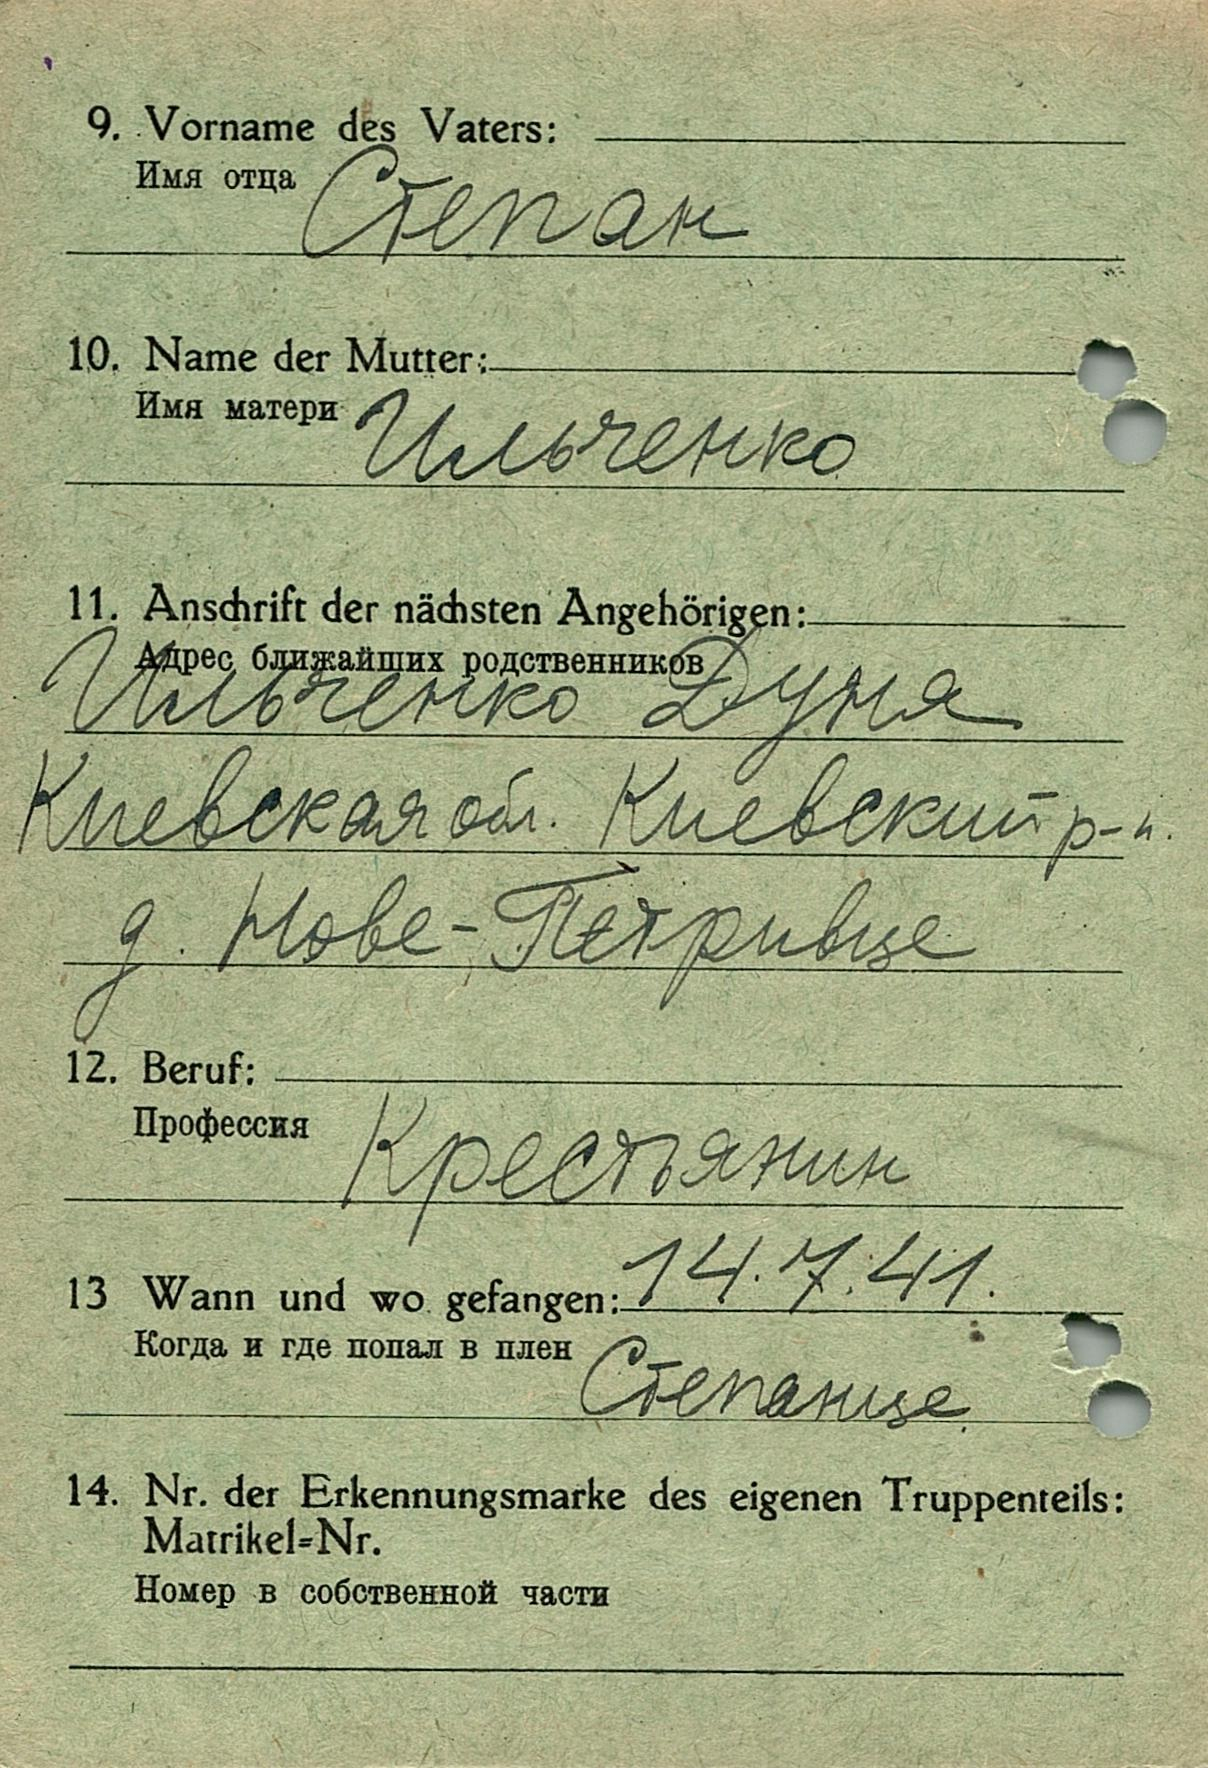 9. Vorname des Vaters:
Имя отца Степан
10. Name der Mutter:
Имя матери Ильченко
11. Anschrift der nächsten Angehörigen:
Адрес ближайших родственников
Ильченко Дуня
Киевская обл. Киевский р-н.
д. Нове-Петривце
12. Beruf:
Профессия Крестьянин
13 Wann und wo gefangen: 14.7.41.
Когда и где попал в плен Степанце
14. Nr. der Erkennungsmarke des eigenen Truppenteils:
Matrikel=Nr.
Номер в собственной части